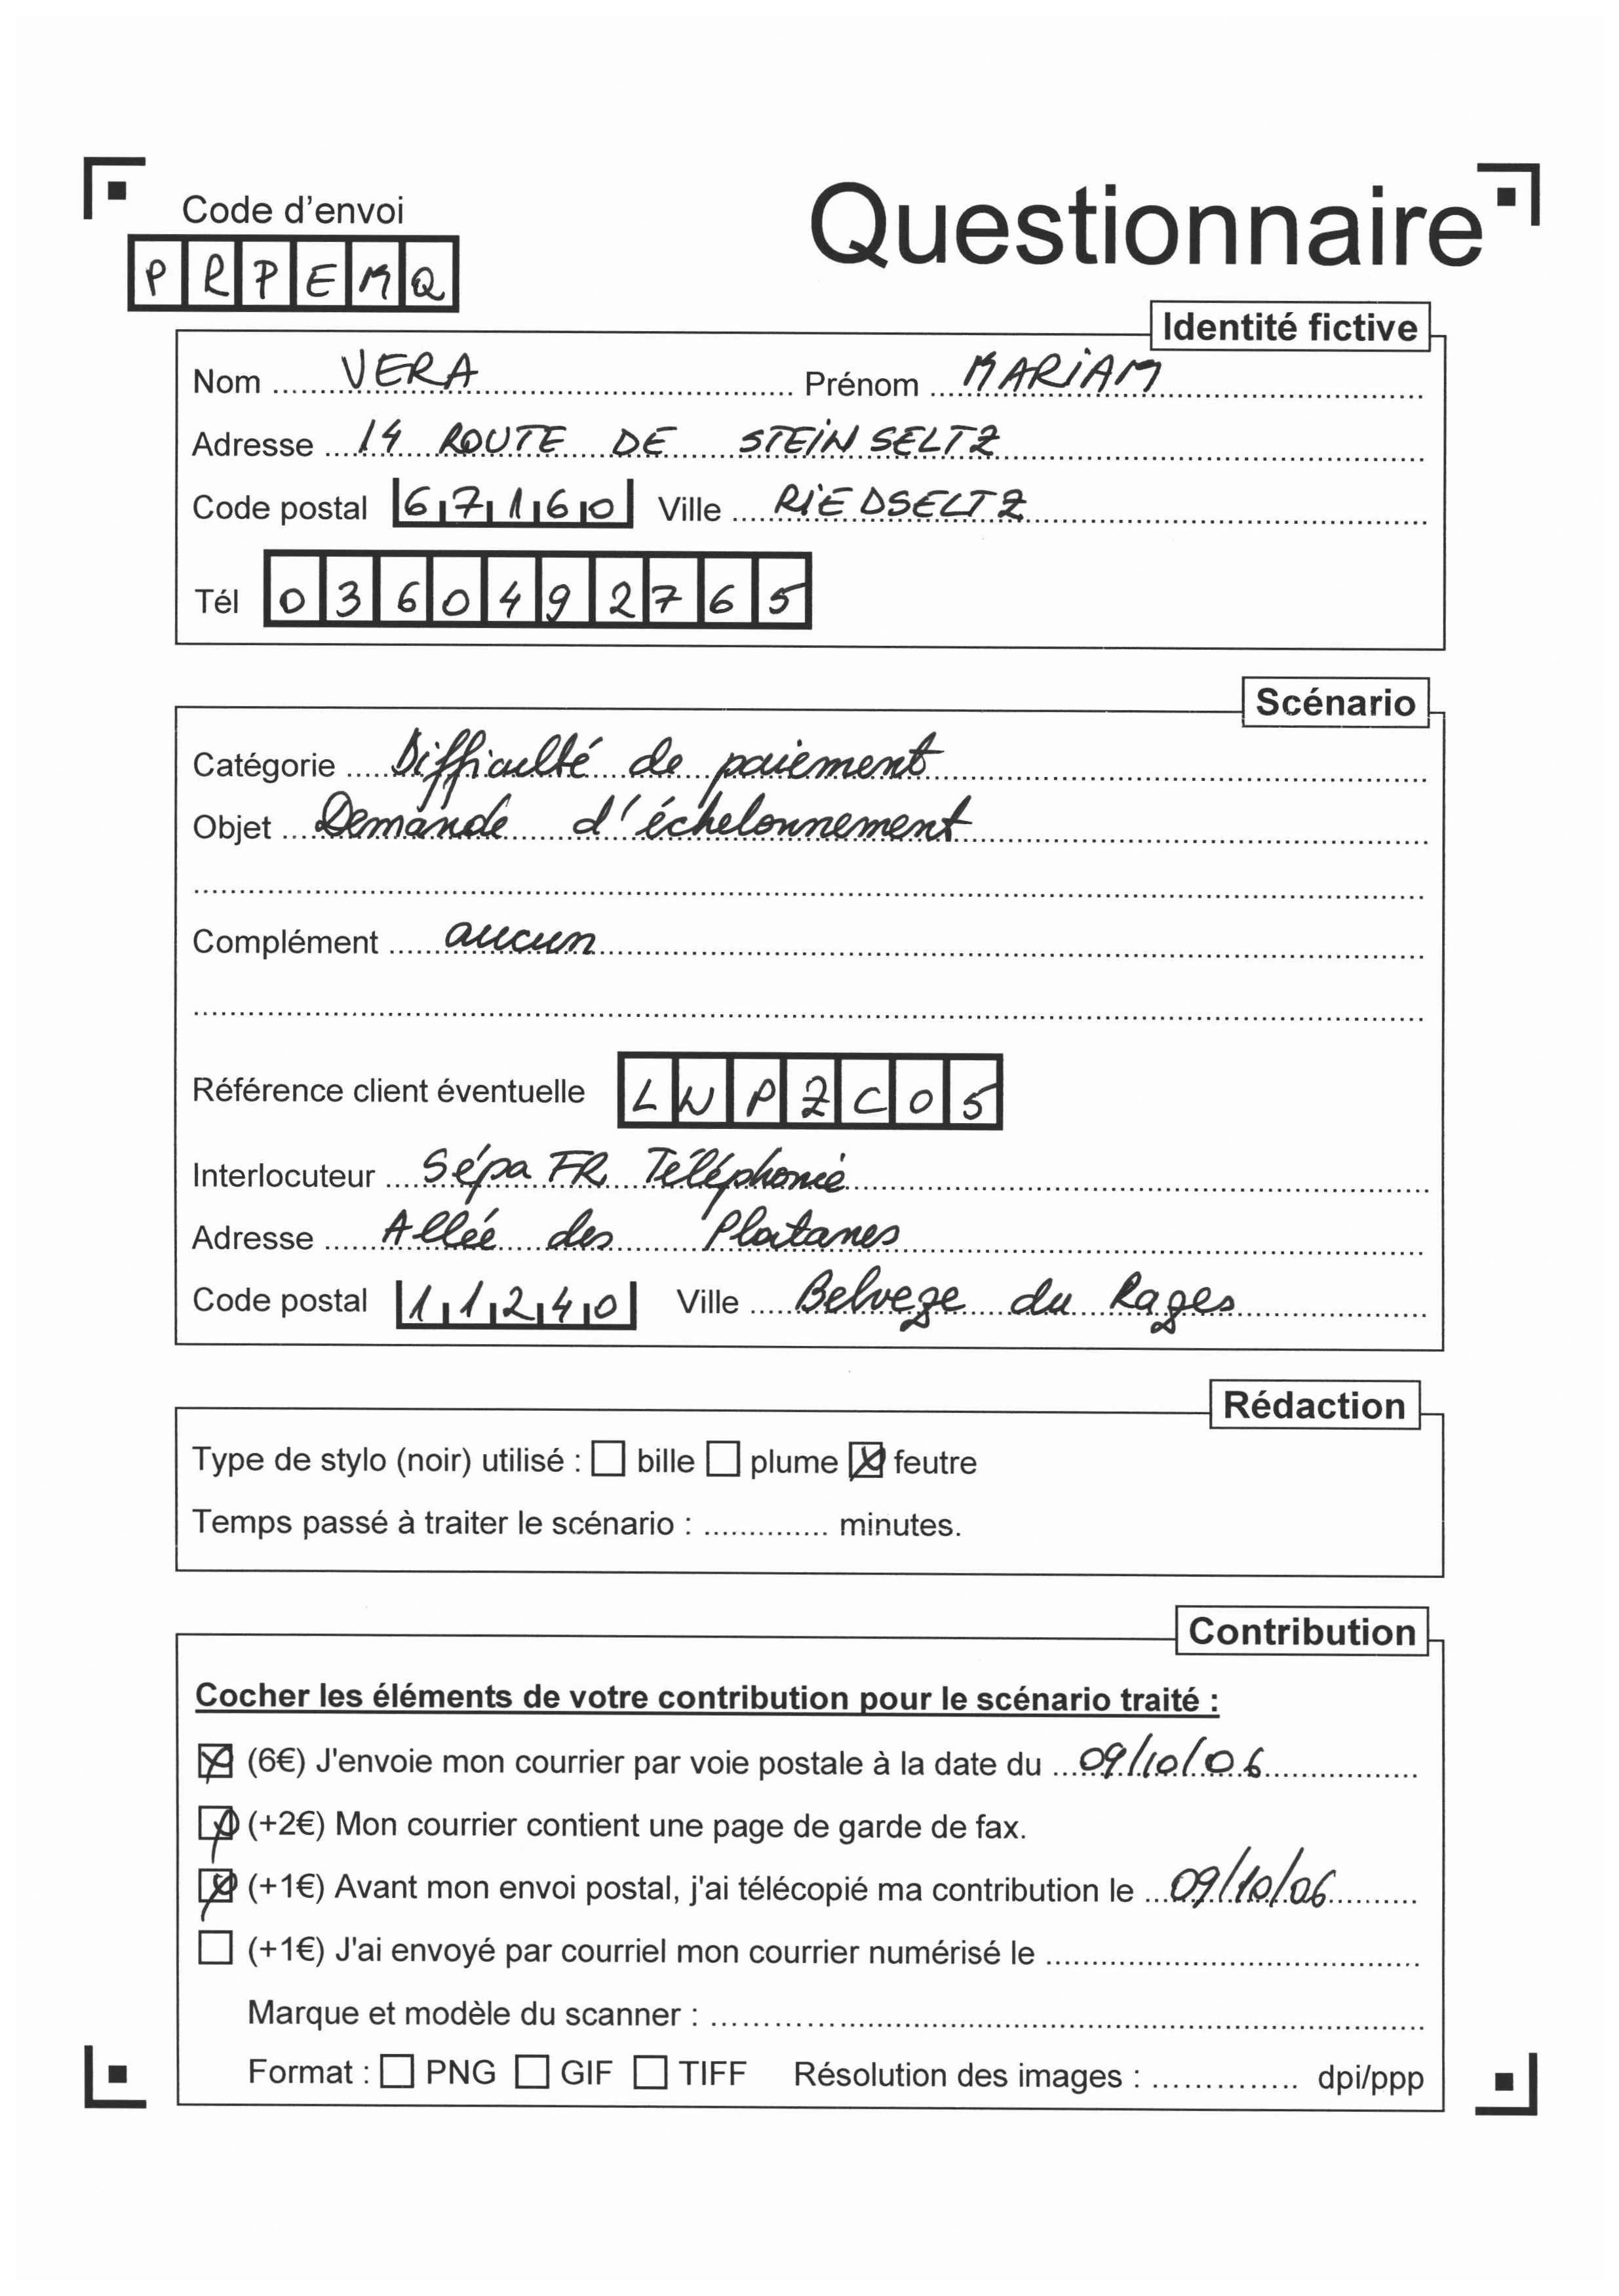 Code d'envoi
Questionnaire
PRPEMQ
Identité fictive
Nom VERA Prénom MARIAM
Adresse 14 ROUTE DE STEINSELTZ
Code postal 67160 Ville RIEDSELTZ
Tél 0360492765
Scénario
Catégorie Difficulté de paiement
Objet Demande d'échelonnement
Complément aucun
Référence client éventuelle LWPZC05
Interlocuteur Sépa FR Téléphonie
Adresse Allée des Platanes
Code postal 11240 Ville Belveze du Razes
Rédaction
Type de stylo (noir) utilisé : bille plume feutre
Temps passé à traiter le scénario : .............. minutes.
Contribution
Cocher les éléments de votre contribution pour le scénario traité :
(6€) J'envoie mon courrier par voie postale à la date du 09/10/06
(+2€) Mon courrier contient une page de garde de fax.
(+1€) Avant mon envoi postal, j'ai télécopié ma contribution le 09/10/06
(+1€) J'ai envoyé par courriel mon courrier numérisé le
Marque et modèle du scanner :
Format : PNG GIF TIFF Résolution des images : .............. dpi/ppp